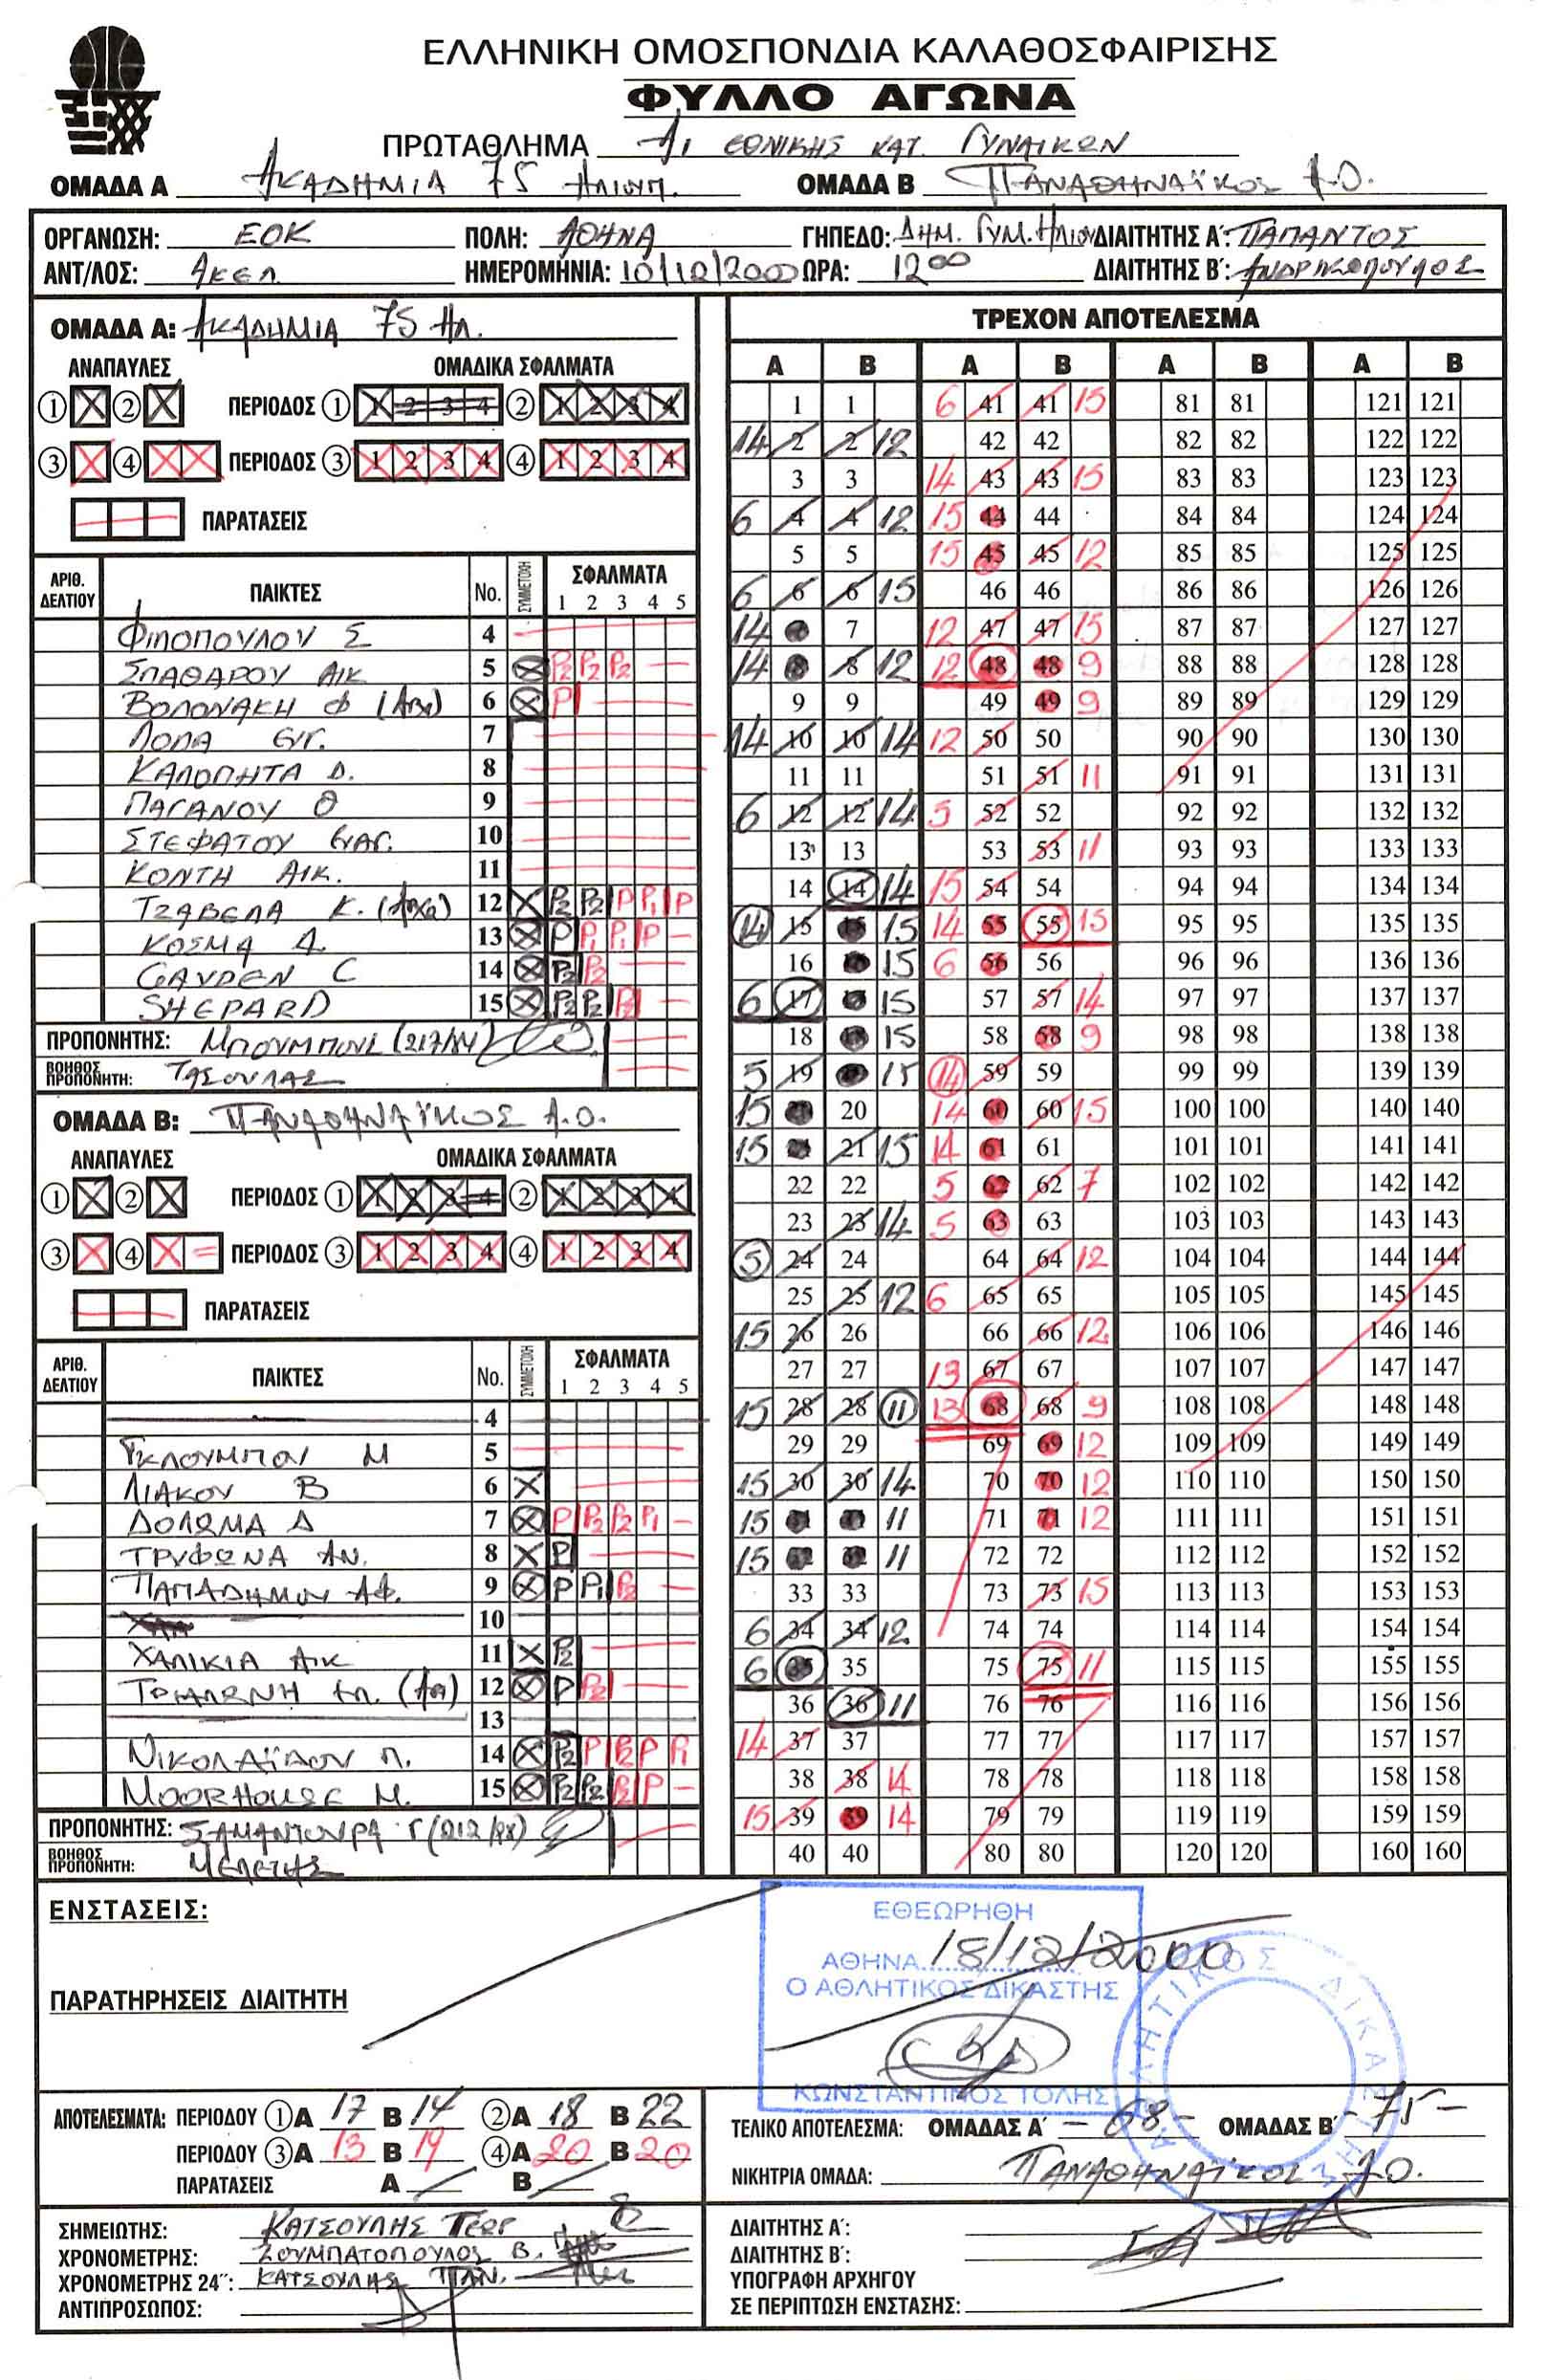 ΕΛΛΗΝΙΚΗ ΟΜΟΣΠΟΝΔΙΑ ΚΑΛΑΘΟΣΦΑΙΡΙΣΗΣ
ΦΥΛΛΟ ΑΓΩΝΑ
ΠΡΩΤΑΘΛΗΜΑ Α1 ΕΘΝΙΚΗΣ ΚΑΤ. ΓΥΝΑΙΚΩΝ
ΟΜΑΔΑ Α ΑΚΑΔΗΜΙΑ 75 ΗΛΙΟΥΠ. ΟΜΑΔΑ Β ΠΑΝΑΘΗΝΑΪΚΟΣ Α.Ο.
ΟΡΓΑΝΩΣΗ: ΕΟΚ ΠΟΛΗ: ΑΘΗΝΑ ΓΗΠΕΔΟ: ΔΗΜ. ΓΥΜ. ΗΛΙΟΥ ΔΙΑΙΤΗΤΗΣ Α΄: ΠΑΠΑΝΤΟΣ
ΑΝΤ/ΛΟΣ: ΗΜΕΡΟΜΗΝΙΑ: 10/12/2000 ΩΡΑ: 12 00 ΔΙΑΙΤΗΤΗΣ Β΄: ΑΝΔΡΙΚΟΠΟΥΛΟΣ
ΟΜΑΔΑ Α: ΑΚΑΔΗΜΙΑ 75 ΗΛ.
ΑΝΑΠΑΥΛΕΣ ΟΜΑΔΙΚΑ ΣΦΑΛΜΑΤΑ
1 2 ΠΕΡΙΟΔΟΣ 1 1 2 3 4 2 1 2 3 4
3 4 ΠΕΡΙΟΔΟΣ 3 1 2 3 4 4 1 2 3 4
ΠΑΡΑΤΑΣΕΙΣ
ΑΡΙΘ. ΔΕΛΤΙΟΥ ΠΑΙΚΤΕΣ No. ΣΥΜΜΕΤΟΧΗ ΣΦΑΛΜΑΤΑ
1 2 3 4 5
ΦΙΛΟΠΟΥΛΟΥ Σ 4
ΣΠΑΘΑΡΟΥ ΑΙΚ 5 P2 P2 P2
ΒΟΛΟΝΑΚΗ Φ 6 P
ΛΟΠΑ ΕΥΓ. 7
ΚΑΛΟΠΗΤΑ Δ. 8
ΠΑΓΑΝΟΥ Θ 9
ΣΤΕΦΑΤΟΥ 10
ΚΟΝΤΗ ΑΙΚ. 11
ΤΖΑΒΕΛΑ Κ. 12 P2 P2 P P1 P
ΚΟΣΜΑ Α. 13 P P1 P1 P
GAYDEN C 14 P2 P2
SHEPARD 15 P2 P2 P2
ΠΡΟΠΟΝΗΤΗΣ: ΜΠΟΥΜΠΟΥΛ (217/84)
ΒΟΗΘΟΣ ΠΡΟΠΟΝΗΤΗ: ΤΑΣΟΥΛΑΣ
ΟΜΑΔΑ Β: ΠΑΝΑΘΗΝΑΪΚΟΣ Α.Ο.
ΑΝΑΠΑΥΛΕΣ ΟΜΑΔΙΚΑ ΣΦΑΛΜΑΤΑ
1 2 ΠΕΡΙΟΔΟΣ 1 1 2 3 4 2 1 2 3 4
3 4 ΠΕΡΙΟΔΟΣ 3 1 2 3 4 4 1 2 3 4
ΠΑΡΑΤΑΣΕΙΣ
ΑΡΙΘ. ΔΕΛΤΙΟΥ ΠΑΙΚΤΕΣ No. ΣΥΜΜΕΤΟΧΗ ΣΦΑΛΜΑΤΑ
1 2 3 4 5
4
ΓΚΛΟΥΜΠΟΥ Μ 5
ΛΙΑΚΟΥ Β 6
ΔΟΛΩΜΑ Δ 7 P P2 P2 P1
ΤΡΥΦΩΝΑ ΑΝ. 8 P
ΠΑΠΑΔΗΜΟΥ ΑΦ. 9 P P1 P2
10
ΧΑΛΙΚΙΑ ΑΙΚ 11 P2
12 P P2
13
ΝΙΚΟΛΑΪΔΟΥ Π. 14 P2 P P2 P P1
MOORHOUSE M. 15 P2 P2 P2 P
ΠΡΟΠΟΝΗΤΗΣ: ΣΑΜΑΝΤΟΥΡΑ Γ (212/98)
ΒΟΗΘΟΣ ΠΡΟΠΟΝΗΤΗ: ΜΕΛΕΤΗΣ
ΤΡΕΧΟΝ ΑΠΟΤΕΛΕΣΜΑ
Α Β Α Β Α Β Α Β
1 1 6 41 41 15 81 81 121 121
14 2 2 12 42 42 82 82 122 122
3 3 14 43 43 15 83 83 123 123
6 4 4 12 15 44 44 84 84 124 124
5 5 15 45 45 12 85 85 125 125
6 6 6 15 46 46 86 86 126 126
14 7 12 47 47 15 87 87 127 127
14 8 8 12 12 48 48 9 88 88 128 128
9 9 49 49 9 89 89 129 129
14 10 10 14 12 50 50 90 90 130 130
11 11 51 51 11 91 91 131 131
6 12 12 14 5 52 52 92 92 132 132
13 13 53 53 11 93 93 133 133
14 14 14 15 54 54 94 94 134 134
14 15 15 14 55 55 15 95 95 135 135
16 15 6 56 56 96 96 136 136
6 17 15 57 57 14 97 97 137 137
18 15 58 58 9 98 98 138 138
5 19 15 14 59 59 99 99 139 139
15 20 14 60 60 15 100 100 140 140
15 21 15 14 61 61 101 101 141 141
22 22 5 62 62 7 102 102 142 142
23 23 14 5 63 63 103 103 143 143
5 24 24 64 64 12 104 104 144 144
25 25 12 6 65 65 105 105 145 145
15 26 26 66 66 12 106 106 146 146
27 27 13 67 67 107 107 147 147
15 28 28 11 13 68 68 9 108 108 148 148
29 29 69 69 12 109 109 149 149
15 30 30 14 70 70 12 110 110 150 150
15 11 71 71 12 111 111 151 151
15 11 72 72 112 112 152 152
33 33 73 73 15 113 113 153 153
6 34 34 12 74 74 114 114 154 154
6 35 35 75 75 11 115 115 155 155
36 36 11 76 76 116 116 156 156
14 37 37 77 77 117 117 157 157
38 38 14 78 78 118 118 158 158
15 39 39 14 79 79 119 119 159 159
40 40 80 80 120 120 160 160
ΕΝΣΤΑΣΕΙΣ:
ΠΑΡΑΤΗΡΗΣΕΙΣ ΔΙΑΙΤΗΤΗ
ΕΘΕΩΡΗΘΗ
ΑΘΗΝΑ 18/12/2000
Ο ΑΘΛΗΤΙΚΟΣ ΔΙΚΑΣΤΗΣ
ΚΩΝΣΤΑΝΤΙΝΟΣ ΤΟΛΗΣ
ΑΘΛΗΤΙΚΟΣ ΔΙΚΑΣΤΗΣ
ΑΠΟΤΕΛΕΣΜΑΤΑ: ΠΕΡΙΟΔΟΥ 1 Α 17 Β 14 2 Α 18 Β 22
ΠΕΡΙΟΔΟΥ 3 Α 13 Β 19 4 Α 20 Β 20
ΠΑΡΑΤΑΣΕΙΣ Α Β
ΤΕΛΙΚΟ ΑΠΟΤΕΛΕΣΜΑ: ΟΜΑΔΑΣ Α΄ - 68 - ΟΜΑΔΑΣ Β΄ - 75 -
ΝΙΚΗΤΡΙΑ ΟΜΑΔΑ: ΠΑΝΑΘΗΝΑΪΚΟΣ Α.Ο.
ΣΗΜΕΙΩΤΗΣ: ΚΑΤΣΟΥΛΗΣ ΓΕΩΡ
ΧΡΟΝΟΜΕΤΡΗΣ: ΖΟΥΜΠΑΤΟΠΟΥΛΟΣ Β.
ΧΡΟΝΟΜΕΤΡΗΣ 24΄΄: ΚΑΤΣΟΥΛΗΣ ΠΑΝ.
ΑΝΤΙΠΡΟΣΩΠΟΣ:
ΔΙΑΙΤΗΤΗΣ Α΄:
ΔΙΑΙΤΗΤΗΣ Β΄:
ΥΠΟΓΡΑΦΗ ΑΡΧΗΓΟΥ
ΣΕ ΠΕΡΙΠΤΩΣΗ ΕΝΣΤΑΣΗΣ: